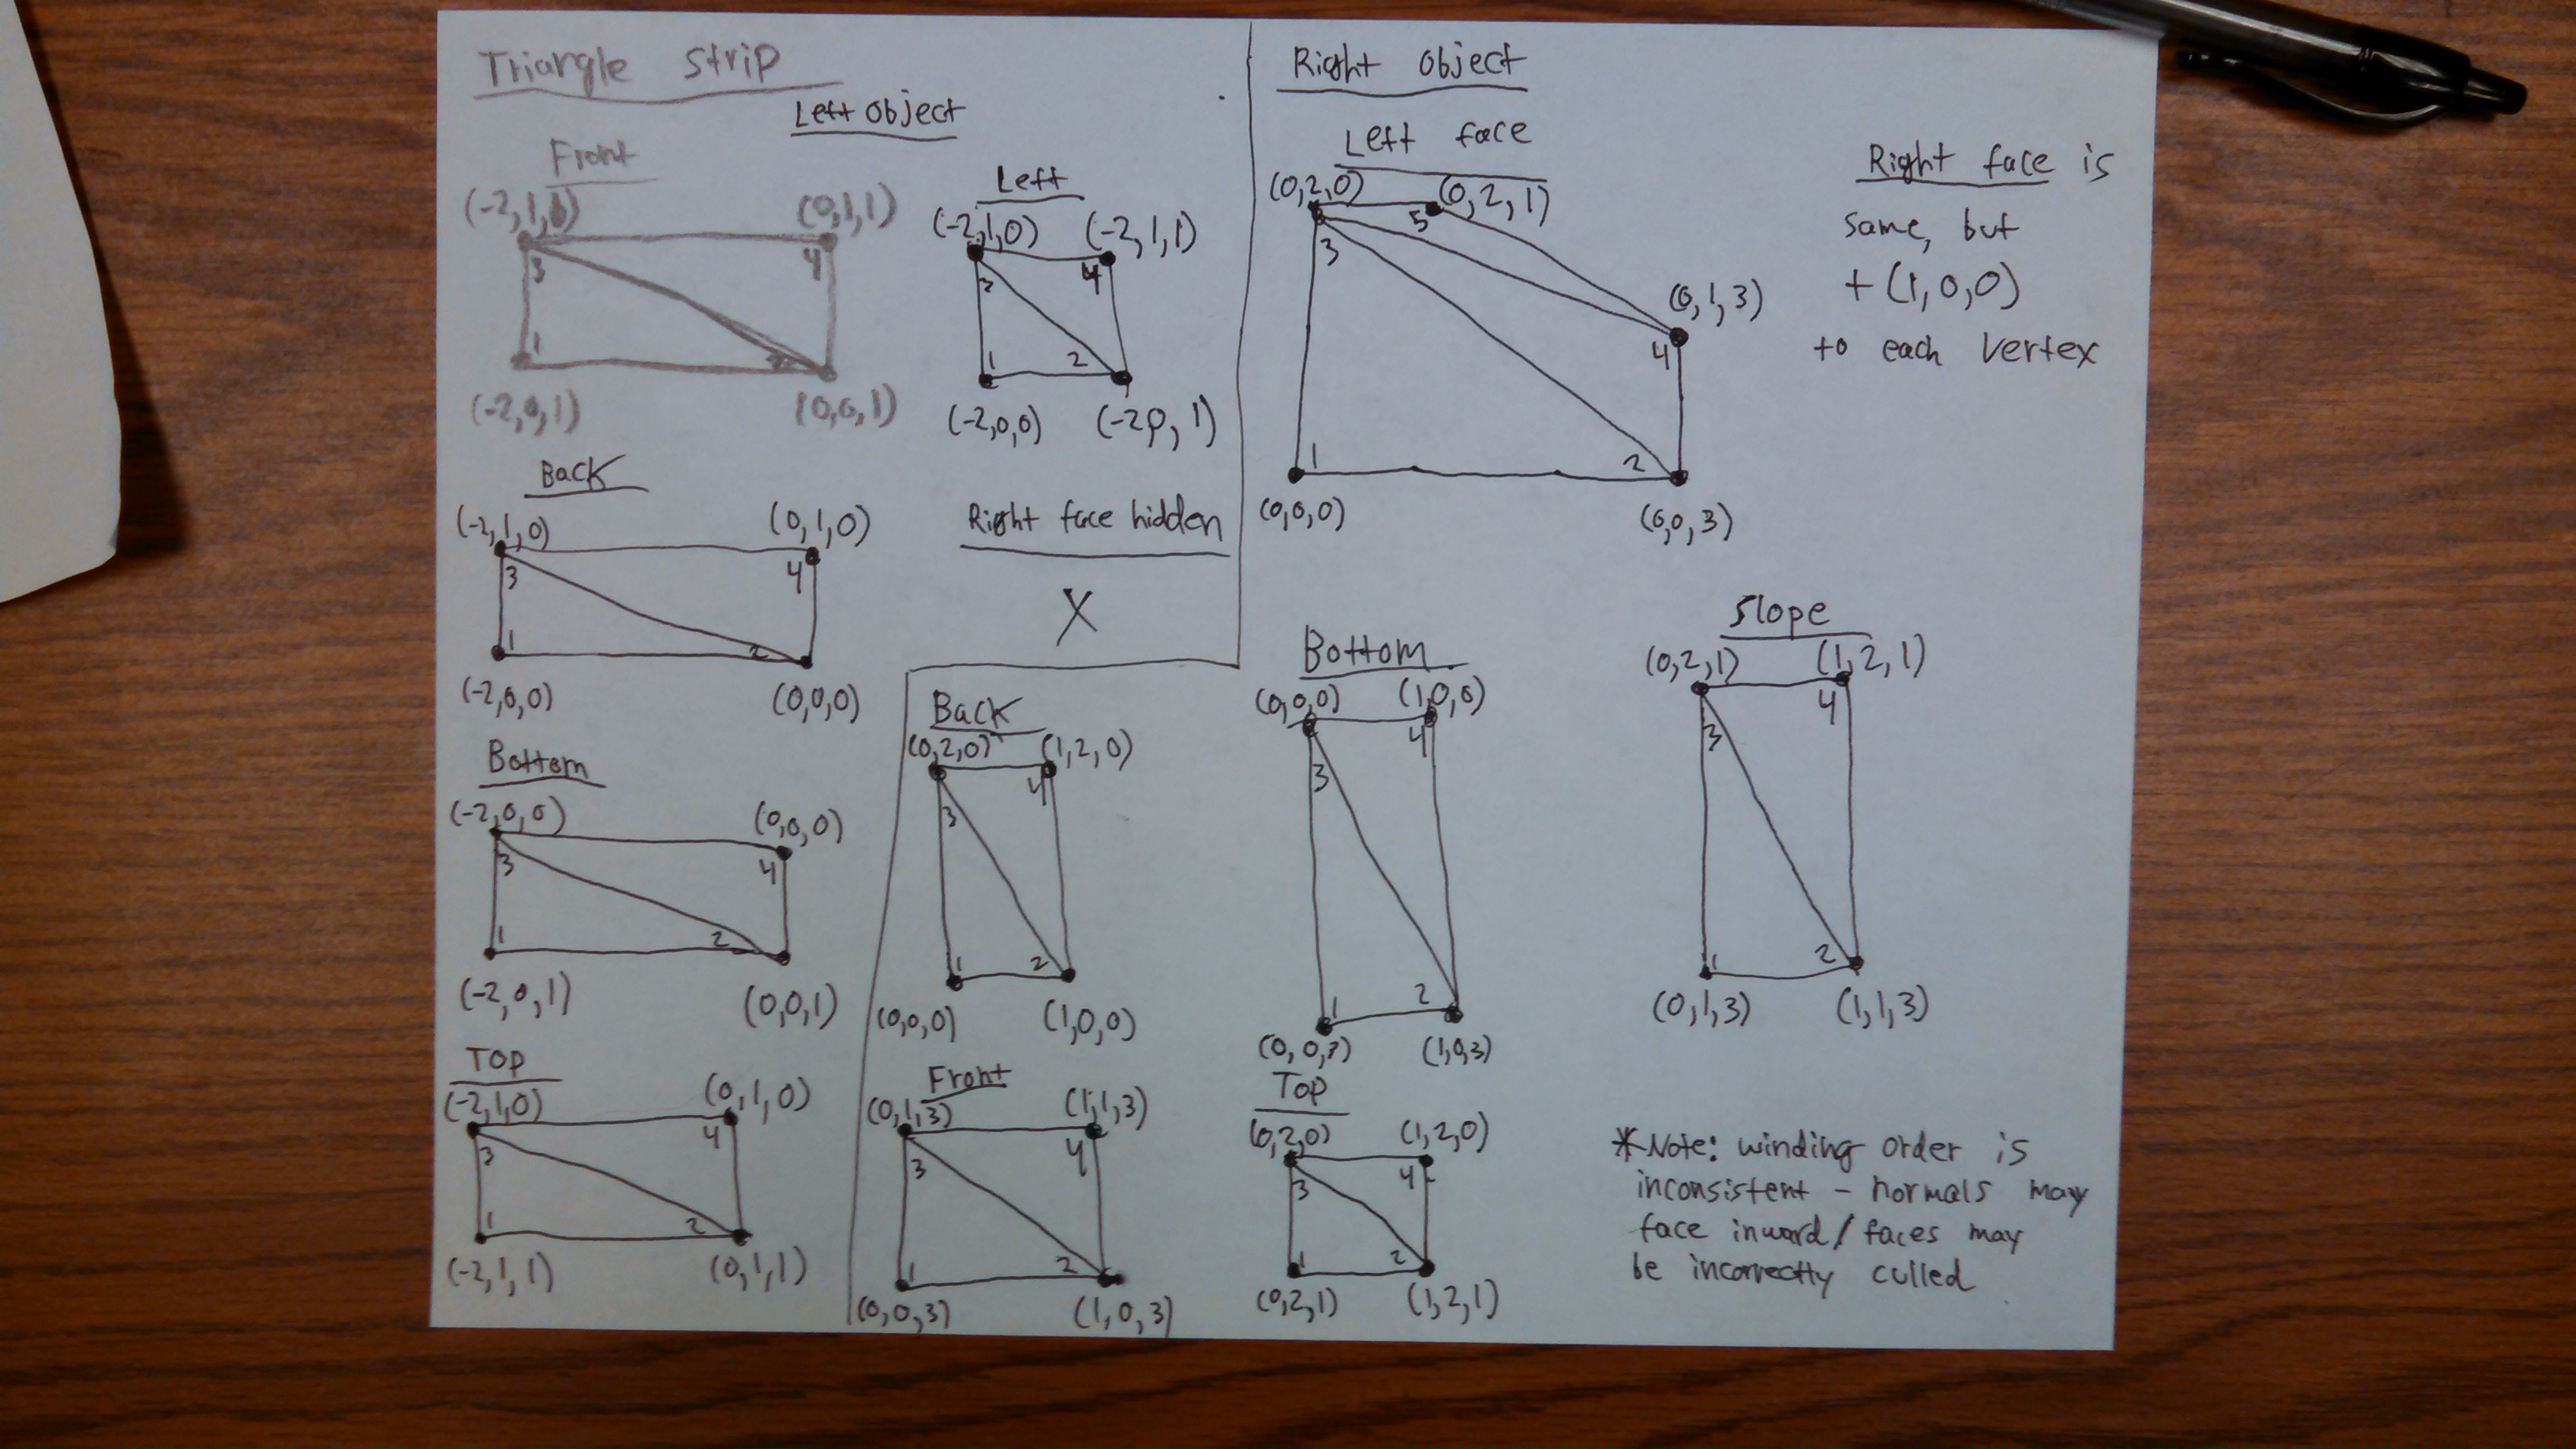 Triangle Strip
Left Object
Front
(-2,1,1) (0,1,1)
3 4
1 2
(-2,0,1) (0,0,1)
Left
(-2,1,0) (-2,1,1)
3 4
1 2
(-2,0,0) (-2,0,1)
Back
(-2,1,0) (0,1,0)
3 4
1 2
(-2,0,0) (0,0,0)
Right face hidden
X
Bottom
(-2,0,0) (0,0,0)
3 4
1 2
(-2,0,1) (0,0,1)
TOP
(-2,1,0) (0,1,0)
3 4
1 2
(-2,1,1) (0,1,1)
Right Object
Left face
(0,2,0) (0,2,1)
3 5
(0,1,3)
4
1 2
(0,0,0) (0,0,3)
Right face is
same, but
+(1,0,0)
to each vertex
Back
(0,2,0) (1,2,0)
3 4
1 2
(0,0,0) (1,0,0)
Bottom
(0,0,0) (1,0,0)
3 4
1 2
(0,0,3) (1,0,3)
Slope
(0,2,1) (1,2,1)
3 4
1 2
(0,1,3) (1,1,3)
Front
(0,1,3) (1,1,3)
3 4
1 2
(0,0,3) (1,0,3)
Top
(0,2,0) (1,2,0)
3 4
1 2
(0,2,1) (1,2,1)
*Note: winding order is
inconsistent - normals may
face inward/faces may
be incorrectly culled